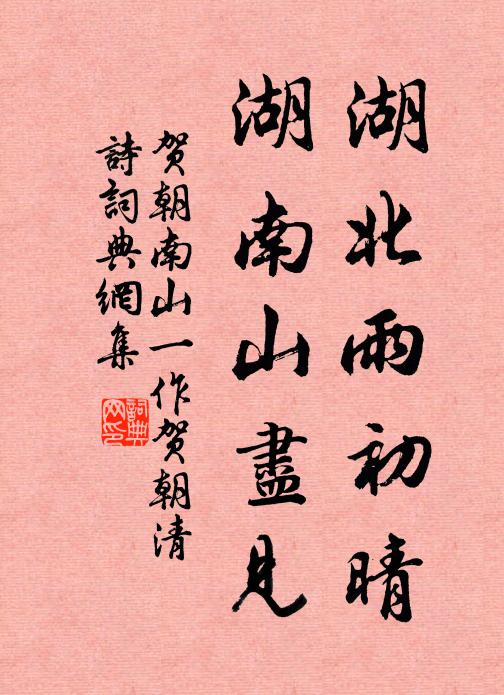 湖北雨初晴
湖南山盡見
贺朝南山一作贺朝清
詩詞典網集
詞典网印